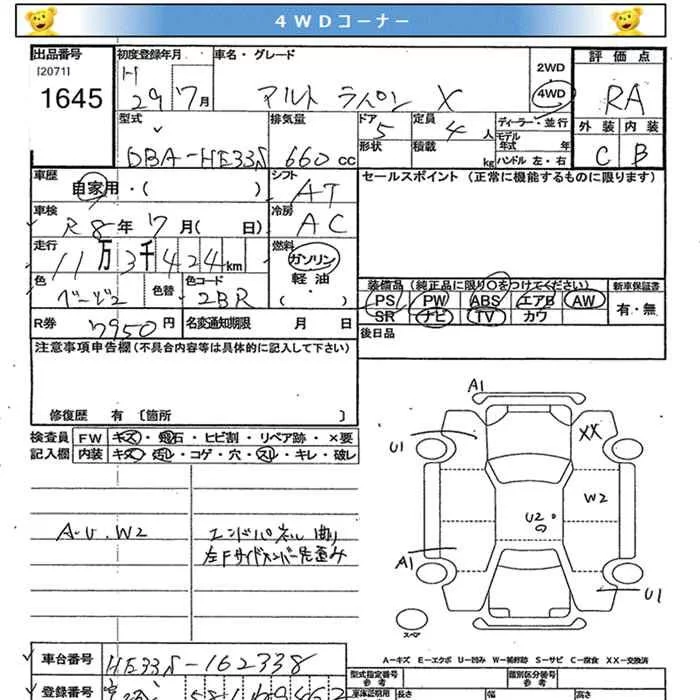 4WDコーナー
出品番号
[2071]
1645
初度登録年月
H 29 7月
車名・グレード
アルト ラパン X
2WD
4WD
評価点
RA
外装 内装
C B
型式
DBA-HE33S
排気量
660 cc
ドア
5
形状
定員
4人
積載
kg
ディーラー・並行
モデル年式 年
ハンドル 左・右
車歴
自家用・( )
シフト
AT
セールスポイント (正常に機能するものに限ります)
車検
R8年 7月( 日)
冷房
AC
走行
11万3千424km
燃料
ガソリン
軽油
・( )
色
ベージュ2
色替
色コード
2BR
装備品(純正品に限り○をつけてください)
PS PW ABS エアB AW
SR ナビ TV カワ
新車保証書
有・無
R券
7950円
名変通知期限 月 日
後日品
注意事項申告欄(不具合内容等は具体的に記入して下さい)
修復歴 有 〔箇所 〕
検査員
記入欄
FW キズ・飛石・ヒビ割・リペア跡・×要
内装 キズ・汚レ・コゲ・穴・スリ・キレ・破レ
A・U・W2
エンドパネル曲り
左Fサイドメンバー先歪み
A1
U1
XX
W2
U2
A1
U1
スペア
A−キズ E−エクボ U−凹み W−補修跡 S−サビ C−腐食 XX−交換済
車台番号
HE33S-162338
登録番号
型式指定番号
類別区分番号
参考
参考
長さ
幅
高さ